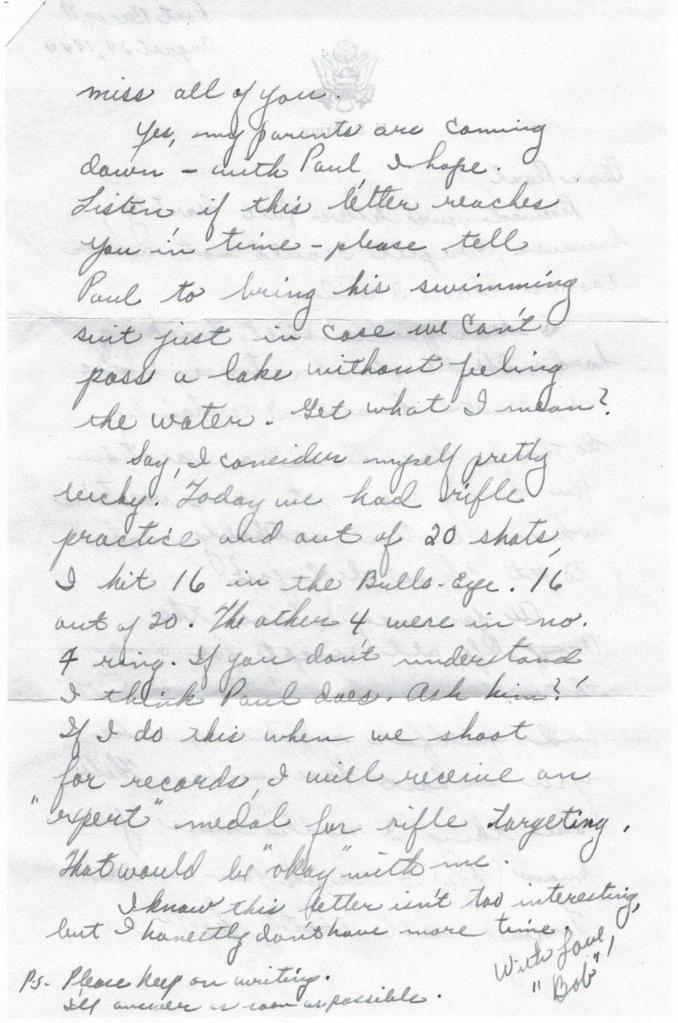 miss all of you.
Yes, my parents are coming
down - with Paul, I hope.
Listen, if this letter reaches
you in time - please tell
Paul to bring his swimming
suit just in case we can't
pass a lake without feeling
the water. Get what I mean?
Say, I consider myself pretty
lucky. Today we had rifle
practice and out of 20 shots,
I hit 16 in the Bulls-eye. 16
out of 20. The other 4 were in no.
4 ring. If you don't understand
I think Paul does. Ask him?!
If I do this when we shoot
for records, I will receive an
"expert" medal for rifle targeting.
That would be "okay" with me.
I know this letter isn't too interesting,
but I honestly don't have more time.
With Love,
"Bob"
P.S. - Please keep on writing.
I'll answer as soon as possible.